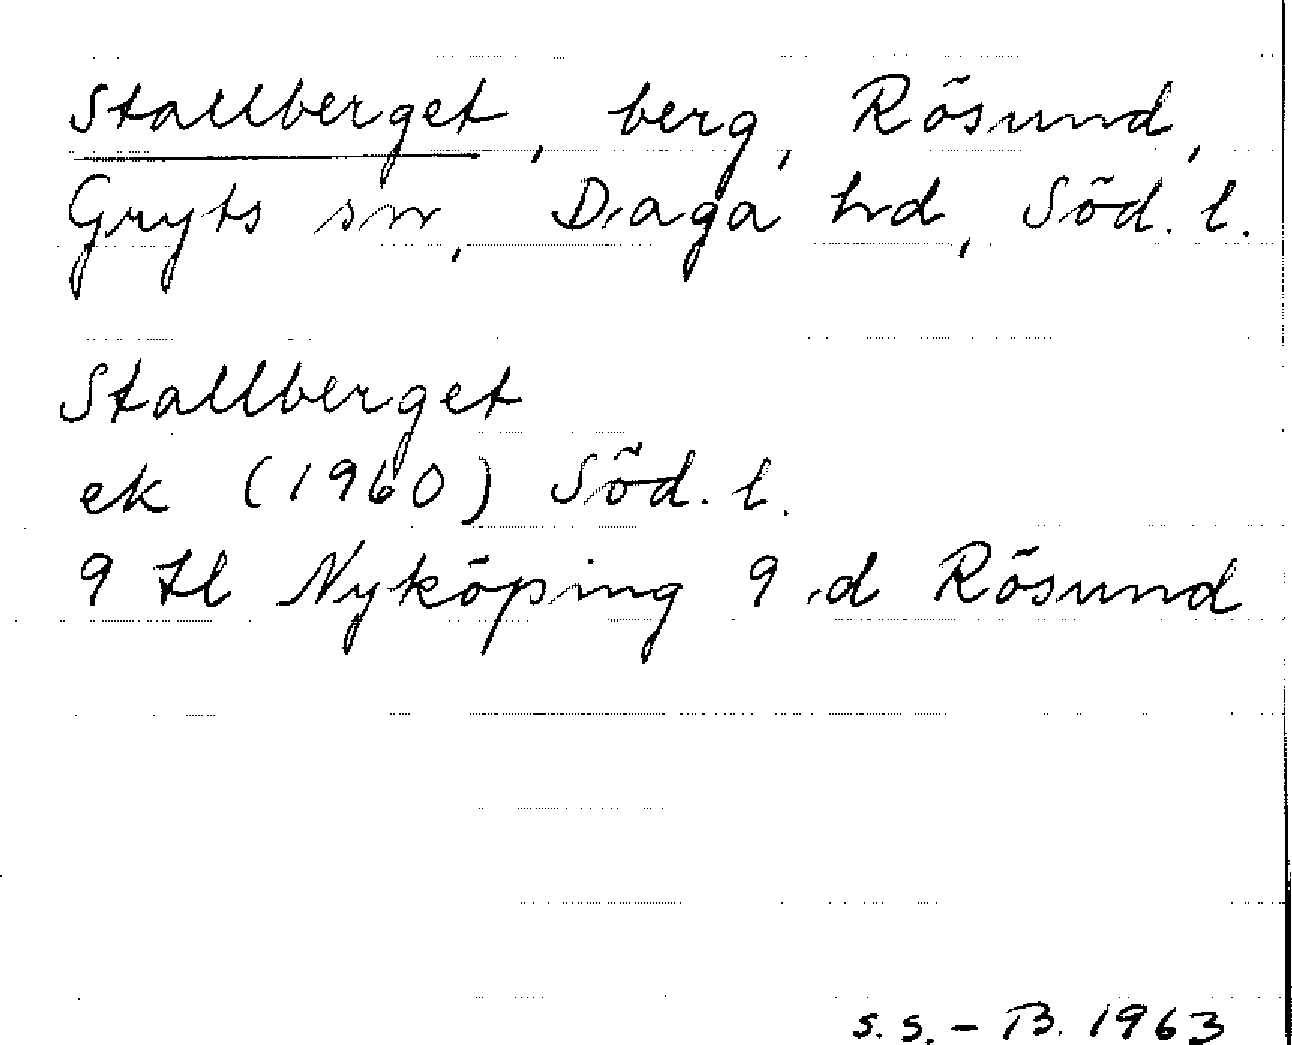 Stallberget, berg, Rösund,
Gryts sn, Daga hd, Söd. l.
Stallberget
ek (1960) Söd. l.
9 H l Nyköping 9 d Rösund
s.s. - B. 1963